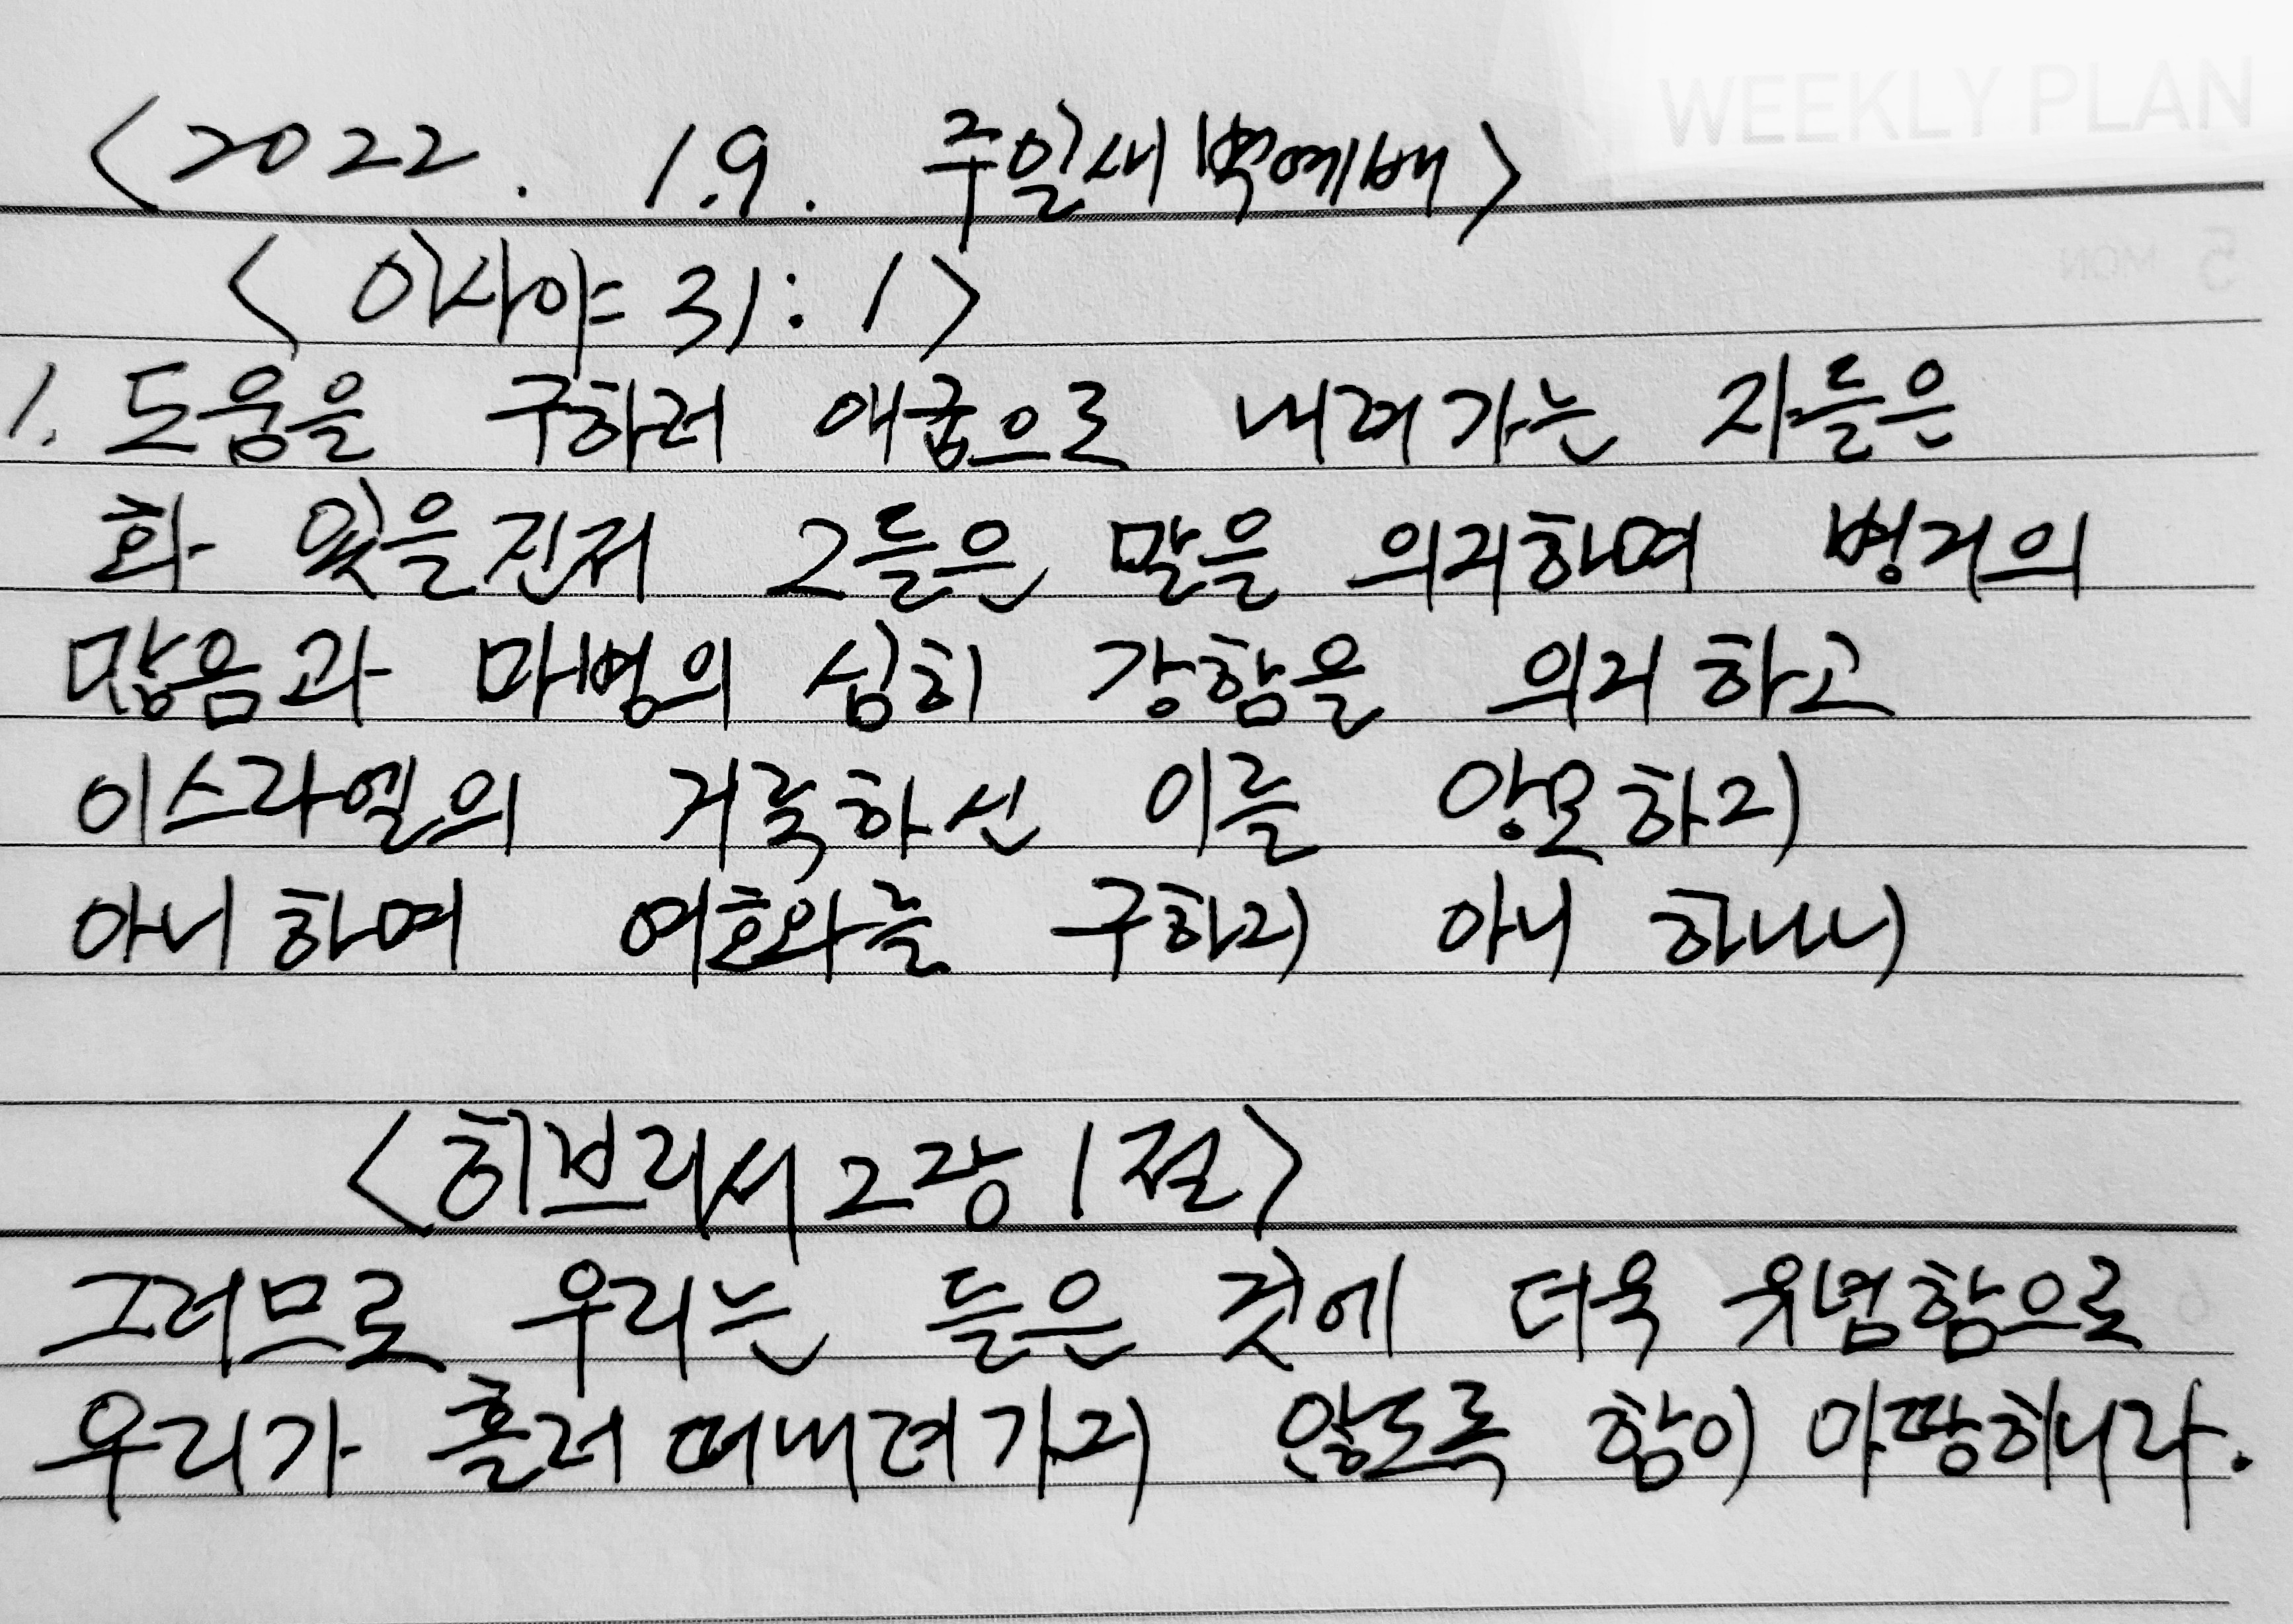 WEEKLY PLAN
<2022. 1.9. 주일새벽예배>
<이사야 31:1>
5 MON
1. 도움을 구하러 애굽으로 내려가는 자들은
화 있을진저 그들은 말을 의지하며 병거의
많음과 마병의 심히 강함을 의지하고
이스라엘의 거룩하신 이를 앙모하지
아니하며 여호와를 구하지 아니 하나니
<히브리서 2장 1절>
그러므로 우리는 들은 것에 더욱 유념함으로
우리가 흘러 떠내려가지 않도록 함이 마땅하니라.